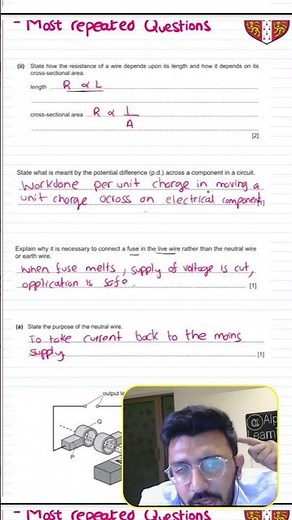 - Most repeated Questions
(ii) State how the resistance of a wire depends upon its length and how it depends on its
cross-sectional area.
length R ∝ L
cross-sectional area R ∝ 1/A
[2]
State what is meant by the potential difference (p.d.) across a component in a circuit.
Workdone per unit charge in moving a
unit charge across an electrical component
Explain why it is necessary to connect a fuse in the live wire rather than the neutral wire
or earth wire.
When fuse melts, supply of voltage is cut,
application is safe. [1]
(a) State the purpose of the neutral wire.
To take current back to the mains
supply [1]
output
Q
P
Learn
- Most repeated Questions